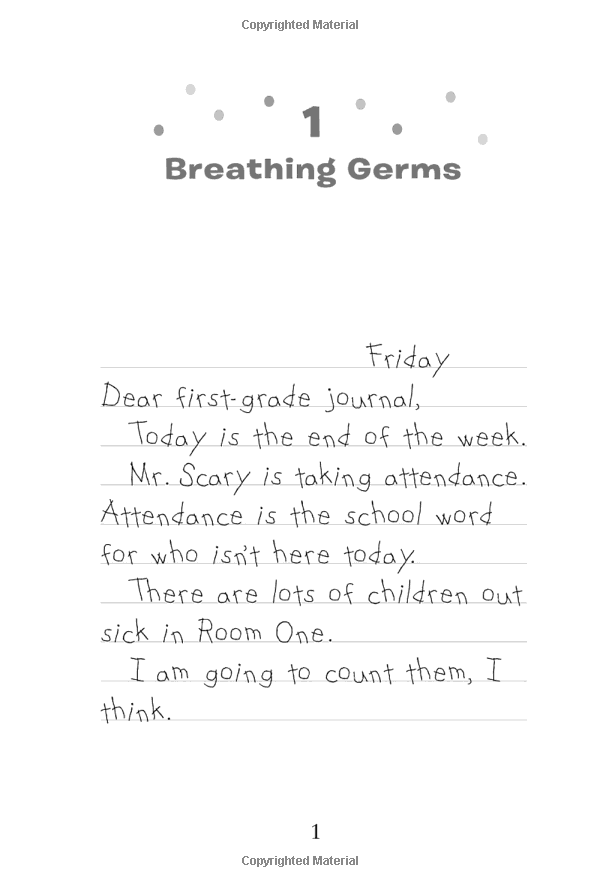 Copyrighted Material
1
Breathing Germs
Friday
Dear first-grade journal,
Today is the end of the week.
Mr. Scary is taking attendance.
Attendance is the school word
for who isn't here today.
There are lots of children out
sick in Room One.
I am going to count them, I
think.
1
Copyrighted Material